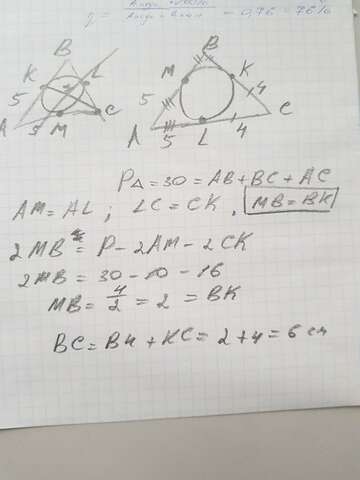 η = 0,76 = 76%
B B
K L M K 4
5 5 C
A 5 M C A 5 L 4
P△ = 30 = AB + BC + AC
AM = AL ; LC = CK , MB = BK
2MB = P - 2AM - 2CK
2MB = 30 - 10 - 16
MB = 4/2 = 2 = BK
BC = BK + KC = 2 + 4 = 6 см